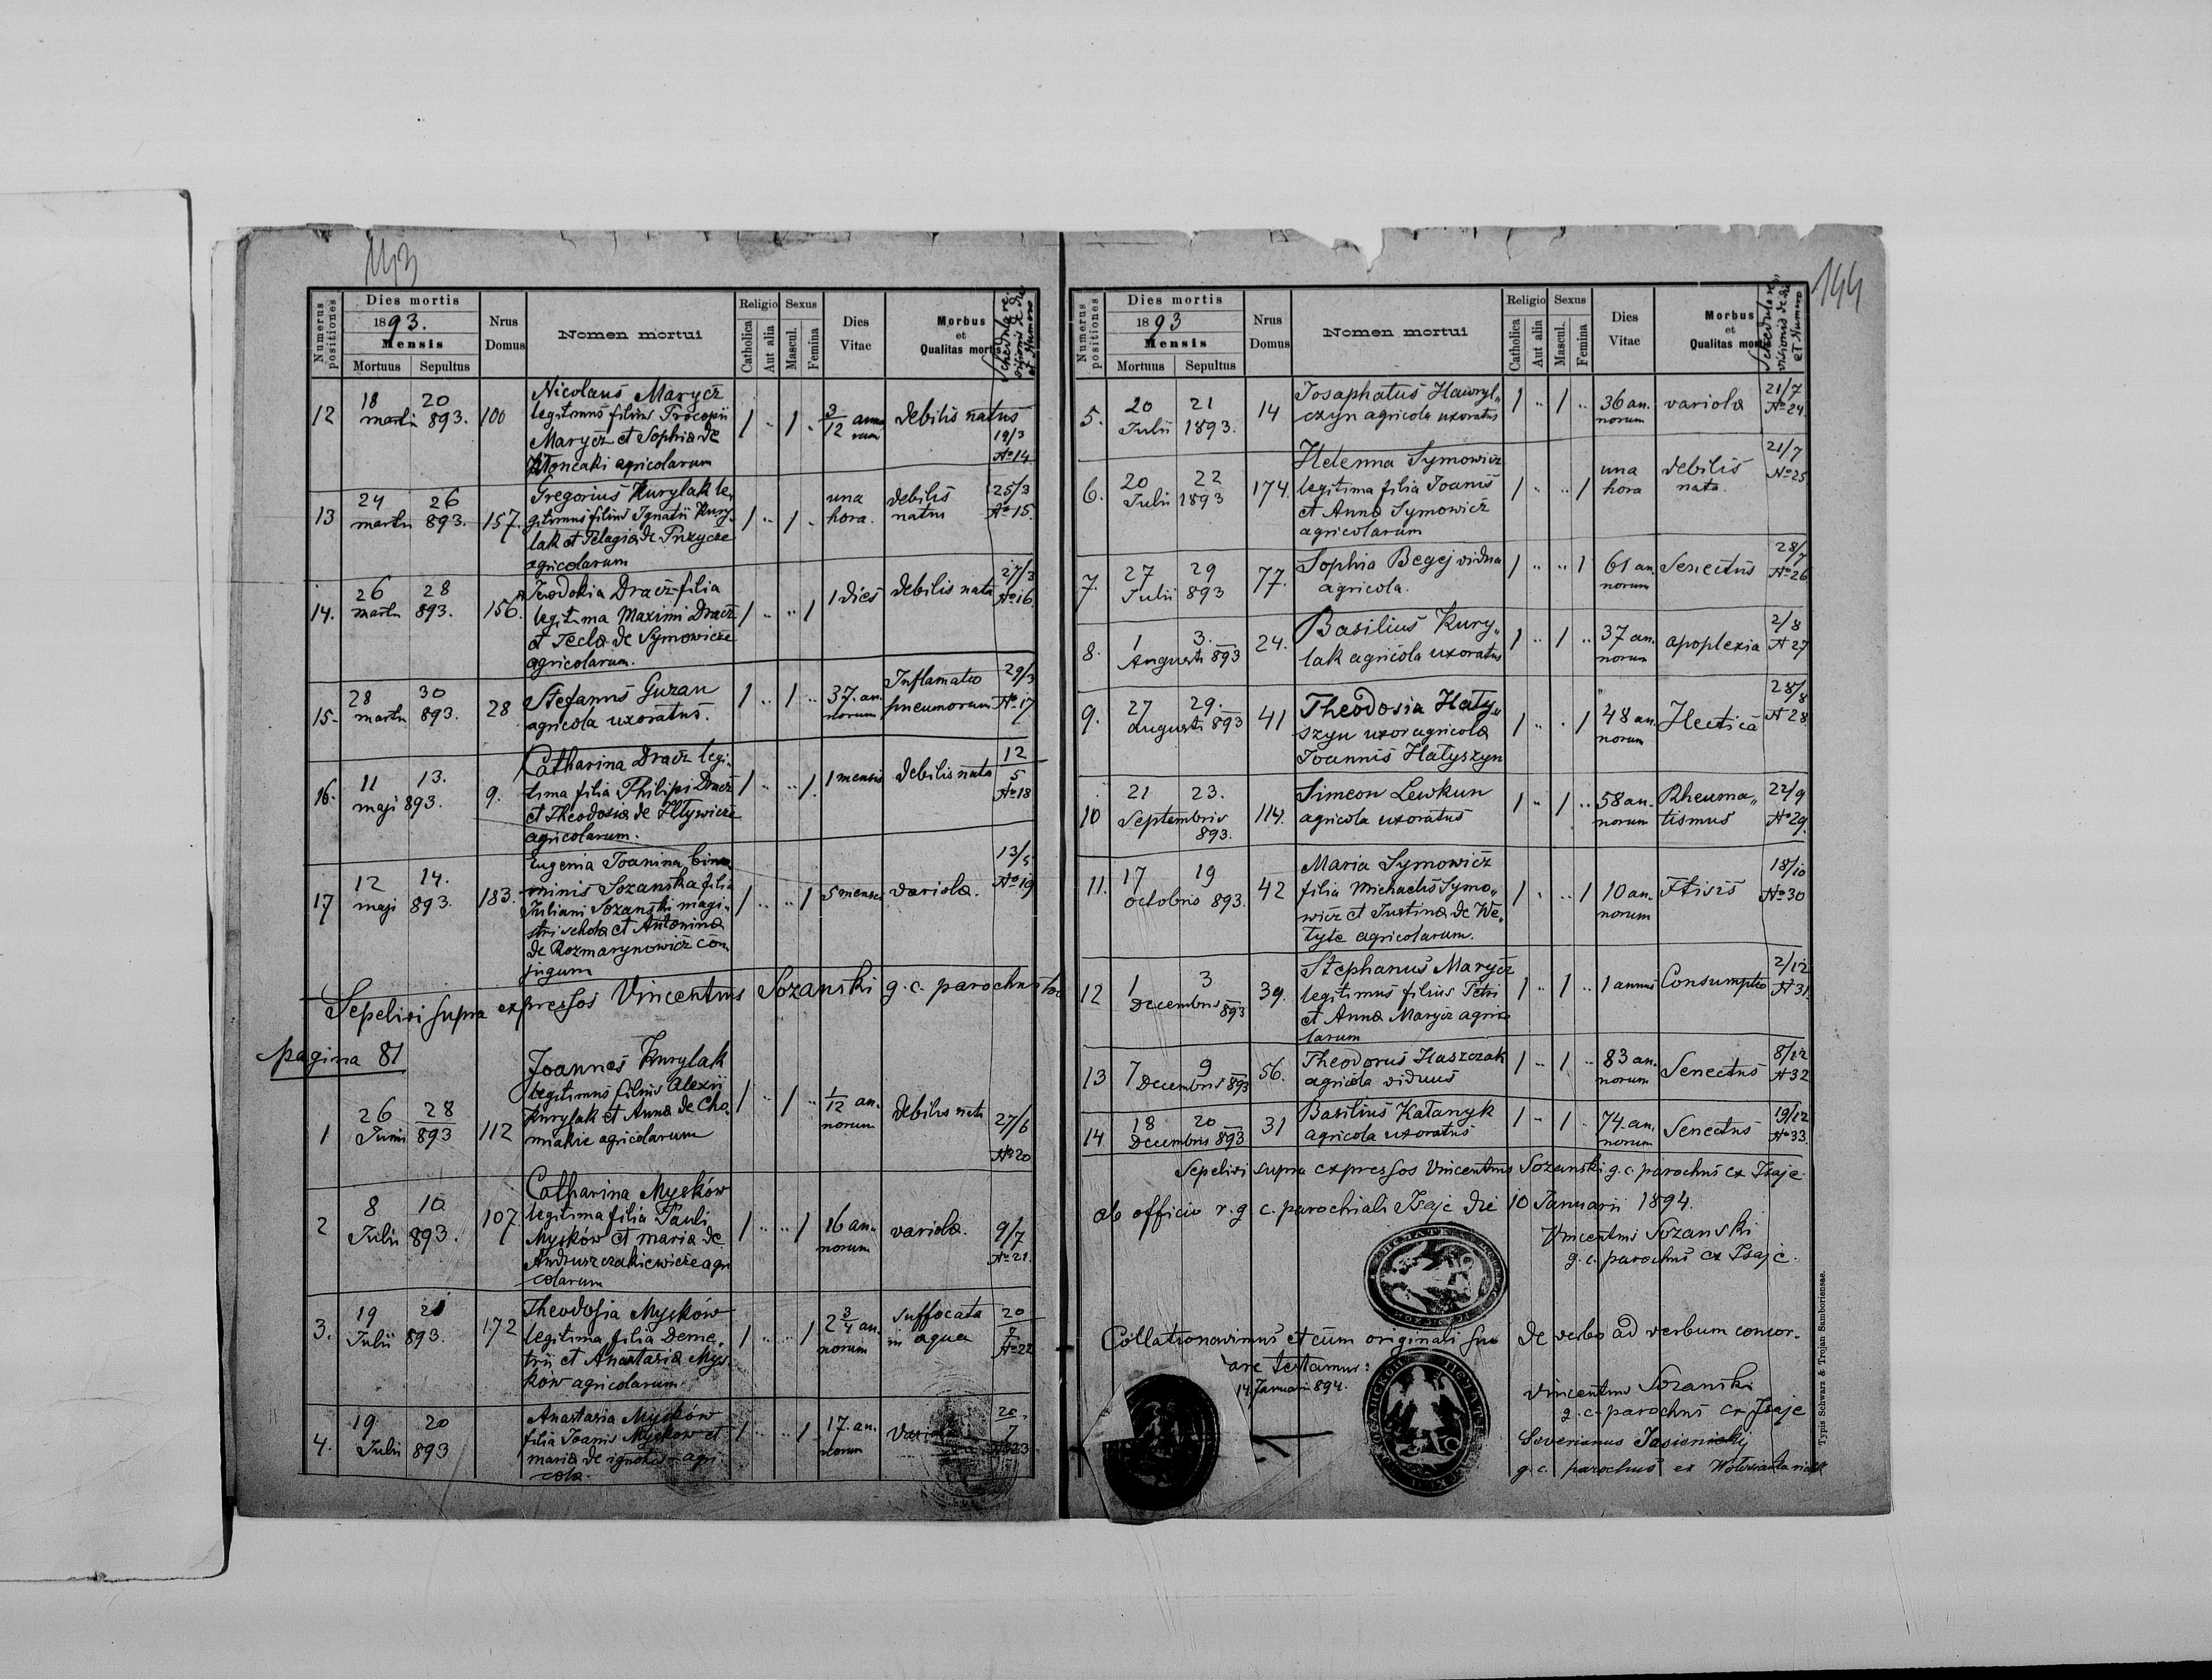 143
Numerus positiones
Dies mortis
1893.
Mensis
Mortuus Sepultus
Nrus Domus
Nomen mortui
Religio
Catholica
Aut alia
Sexus
Mascul.
Femina
Dies Vitae
Morbus
et
Qualitas mortis
12 18 20 martii 893. 100
Nicolaus Marycz
legitimus filius Procopii
Marycz et Sophiæ de
agricolarum
1 .. 1 .. 3/12 anno rum debilis natus 19/3 No 14
13 24 26 martii 893. 157.
Gregorius Kurylak le
gitimus filius Ignatii Kury
lak et Pelagiæ de Przycze
agricolarum
1 .. 1 .. una hora. debilis natus 25/3 No 15.
14. 26 28 martii 893. 156.
Eudokia Dracz filia
legitima Maximi Dracz
et Teclæ de Symowicze
agricolarum.
1 .. .. 1 1 dies debilis nata 27/3 No 16
15. 28 30 martii 893. 28
Stefanus Guzan
agricola uxoratus.
1 .. 1 .. 37. an. norum Inflamatio pneumorum 29/3 No 17
16. 11 13. maji 893. 9.
Catharina Dracz legi
tima filia Philipi Dracz
et Theodosiæ de Iltywicze
agricolarum.
1 .. .. 1 1 mensis debilis nata 12/5 No 18
17 12 14. maji 893. 183.
Eugenia Joanina bino
minis Sozanska filia
Juliani Sozański magi
stri scholæ et Antoninæ
de Rozmarynowicz con
jugum
1 .. .. 1 5 menses variola. 13/5 No 19
Sepelivi supra expressos Vincentius Sozanski g. c. parochus loc
pagina 81
1 26 28 Junii 893 112
Joannes Kurylak
legitimus filius Alexii
Kurylak et Annæ de Cho
miakie agricolarum
1 .. 1 1/12 an. norum debilis nati 27/6 No 20
2 8 10 Julii 893. 107.
Catharina Myśków
legitima filia Pauli
Myśków et maria de
Andruszczakiewicze agri
colarum
1 .. .. 1 16 an norum variola. 9/7 No 21.
3. 19 21 Julii 893. 172
Theodosia Myśków
legitima filia Deme
trii et Anastasiæ Myś
ków agricolarum
1 .. .. 1 2 3/4 an. norum suffocata in aqua 20/7 No 22
4. 19 20 Julii 893
Anastasia Myśków
filia Joanis Myśkow et
mariæ de ignotis agri
cola.
1 .. .. 1 17. an. norum 20/7 No 23
144
Numerus positiones
Dies mortis
1893
Mensis
Mortuus Sepultus
Nrus Domus
Nomen mortui
Religio
Catholica
Aut alia
Sexus
Mascul.
Femina
Dies Vitae
Morbus
et
Qualitas mortis
5. 20 21 Julii 1893. 14
Josaphatus Hawryl
czyn agricola uxoratus
1 .. 1 .. 36 an. norum variola 21/7 No 24.
6. 20 22 Julii 1893 174.
Helenna Symowicz
legitima filia Joanis
et Annæ Symowicz
agricolarum
1 .. .. 1 una hora debilis nata. 21/7 No 25
7. 27 29 Julii 893 77.
Sophia Begej vidua
agricola.
1 .. .. 1 61 an. norum Senectus 28/7 No 26
8. 1 3. Augusti 893 24.
Basilius Kury
lak agricola uxoratus
1 .. 1 .. 37 an. norum apoplexia 2/8 N 27
9. 27 29. augusti 893 41
Theodosia Hały
szyn uxor agricolæ
Joannis Hałyszyn
1 .. . 1 48 an. norum Hectica 28/8 N 28
10 21 23. Septembris 893. 114.
Simeon Lewkun
agricola uxoratus
1 .. 1 .. 58 an. norum Rheuma tismus 22/9 No 29.
11. 17 19 octobris 893. 42
Maria Symowicz
filia Michaelis Symo
wicz et Justinæ de We
tyte agricolarum.
1 .. .. 1 10 an. norum Ftisis 18/10 No 30
12 1 3 Decembris 893 39.
Stephanus Marycz
legitimus filius Petri
et Annæ Marycz agrico
larum
1 .. 1 .. 1 annus Consumptio 2/12 N 31.
13 7 9 Decembris 893 56.
Theodorus Haszczak
agricola viduus
1 .. 1 .. 83 an. norum Senectus 8/12 N 32
14 18 20 Decembris 893 31
Basilius Katanyk
agricola uxoratus
1 - 1 . 74. an. norum Senectus 19/12 No 33.
Sepelivi supra expressos Vincentius Sozanski g. c. parochus ex Isaje.
Ab officio r. g. c. parochiali Isaje die 10 Januarii 1894.
Vincentius Sozanski
g. c. parochus ex Isaje.
Collationavimus et cum originali suo de verbo ad verbum concor-
are testamur:
14 Januarii 894.
Vincentius Sozanski
g. c. parochus ex Isaje
Severianus Jasienicki
g. c. parochus ex
Typis Schwarz & Trojan Samboriensae.